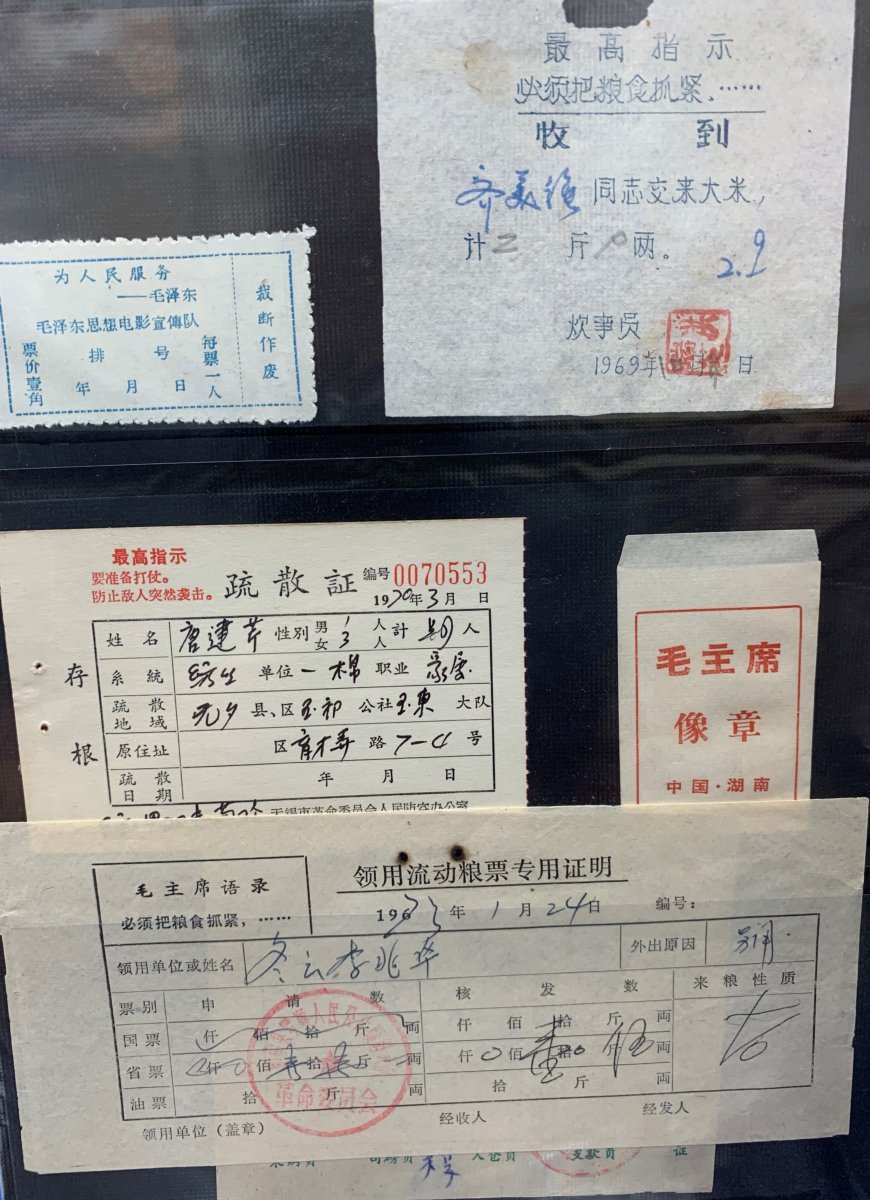 最高指示
必须把粮食抓紧、……
收 到
同志交来大米,
计 斤 两。
2.9
炊事员
1969年 月 日
为人民服务
——毛泽东
毛泽东思想电影宣傳队
排 号
年 月 日
票价壹角
每票一人
裁断作废
最高指示
要准备打仗。
防止敌人突然袭击。
疏散証
编号 0070553
1970年3月 日
存根
姓名 唐建芹 性別 男 女 人 人 計 人
系統 单位 一棉 职业
疏散地域 县、区 公社 玉東 大队
原住址 区 路 7-4 号
疏散日期 年 月 日
无锡市革命委员会人民防空办公室
毛主席
像章
中国·湖南
毛主席语录
必须把粮食抓紧,……
领用流动粮票专用证明
196 年 1 月 24 日 编号:
领用单位或姓名 外出原因
票别 申请数 核发数 来粮性质
国票 仟 佰 拾 斤 両 仟 佰 拾 斤 両
省票 仟 佰 拾 斤 両 仟 佰 拾 斤 両
油票 拾 斤 両 拾 斤 両
革命委员会
领用单位(盖章) 经收人 经发人